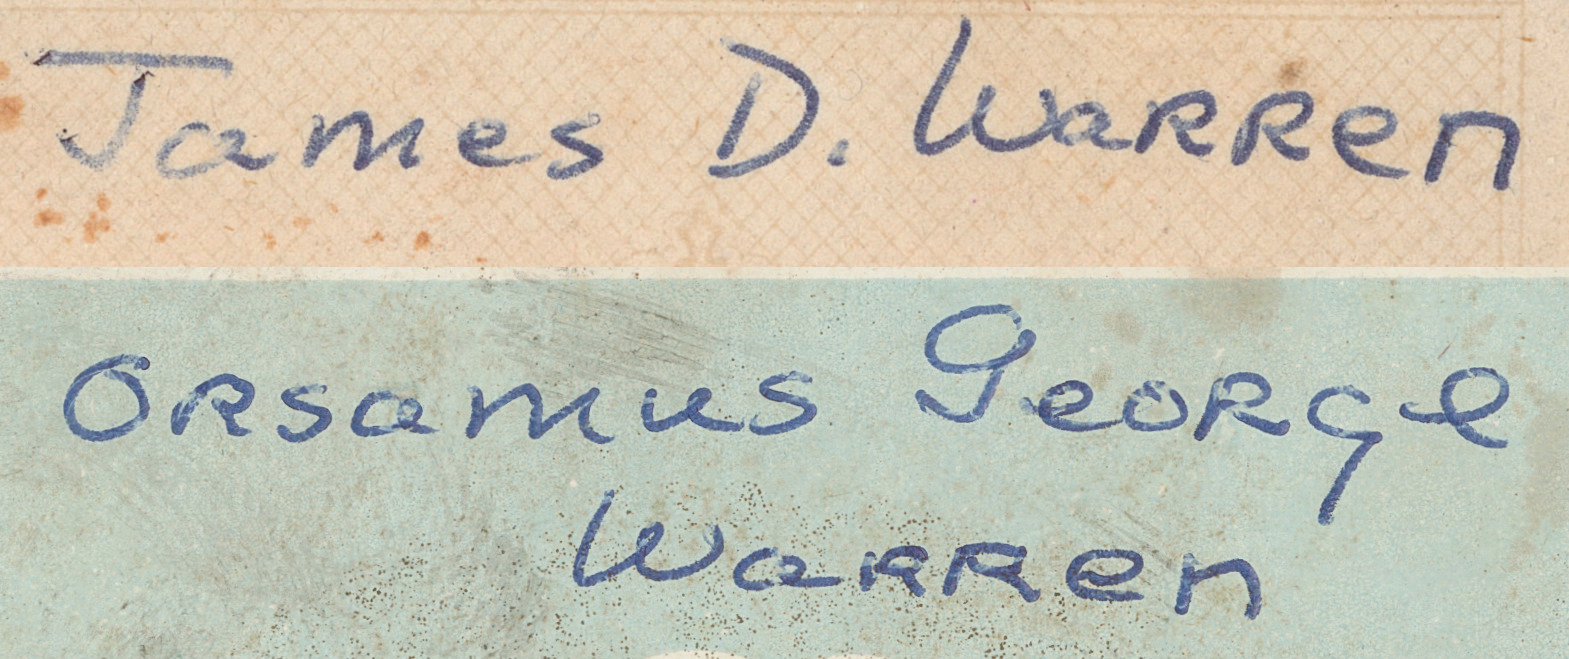 James D. Warren
Orsamus George
Warren